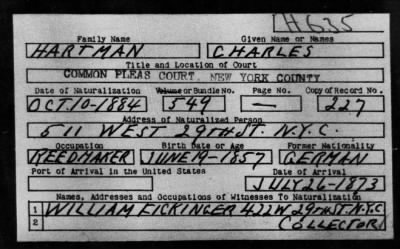 H635
Family Name Given Name or Names
HARTMAN CHARLES
Title and Location of Court
COMMON PLEAS COURT, NEW YORK COUNTY
Date of Naturalization Volume or Bundle No. Page No. Copy of Record No.
OCT. 10-1884 549 — 227
Address of Naturalized Person
511 WEST 29TH ST. N.Y.C.
Occupation Birth Date or Age Former Nationality
REEDMAKER JUNE 19-1857 GERMAN
Port of Arrival in the United States Date of Arrival
JULY 26-1873
Names, Addresses and Occupations of Witnesses To Naturalization
1 WILLIAM EICKINGER 422 W 29TH ST. N.Y.C
2 COLLECTOR